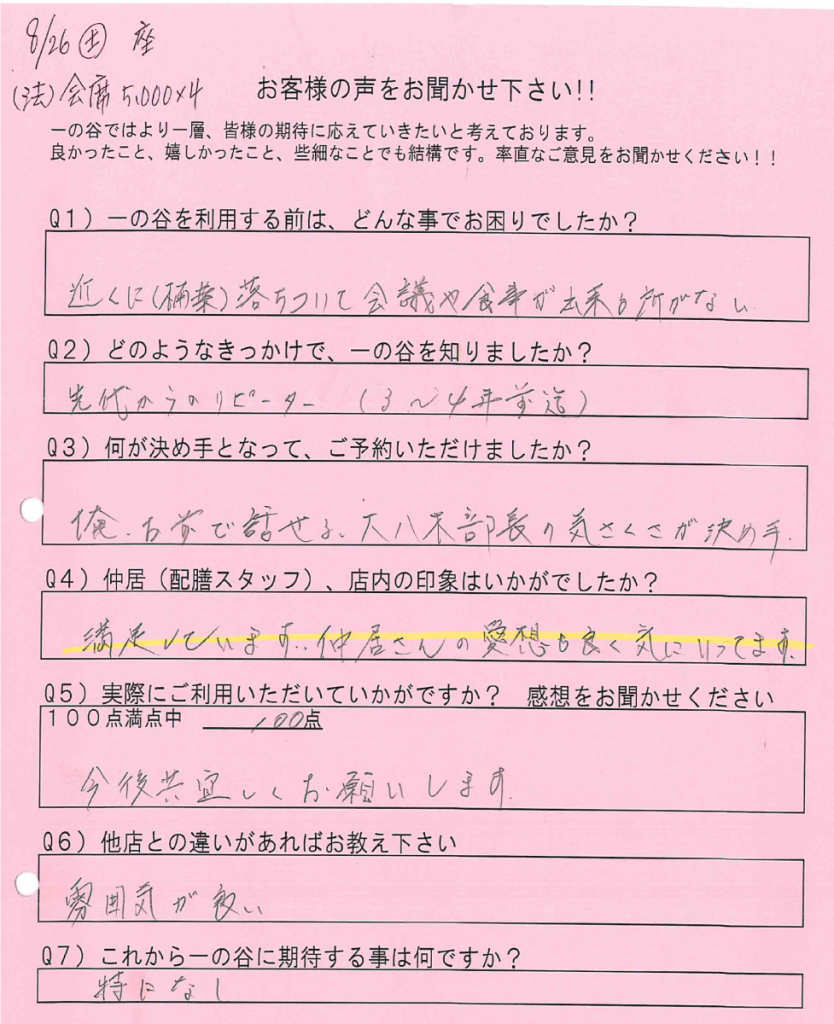 8/26 土 座
(法)会席 5,000×4
お客様の声をお聞かせ下さい!!
一の谷ではより一層、皆様の期待に応えていきたいと考えております。
良かったこと、嬉しかったこと、些細なことでも結構です。率直なご意見をお聞かせください!!
Q1)一の谷を利用する前は、どんな事でお困りでしたか?
近くに(楠葉)落ちついて会議や食事が出来る所がない
Q2)どのようなきっかけで、一の谷を知りましたか?
先代からのリピーター (3〜4年前迄)
Q3)何が決め手となって、ご予約いただけましたか?
俺、お前で話せる、大八木部長の気さくさが決め手.
Q4)仲居(配膳スタッフ)、店内の印象はいかがでしたか?
満足しています..仲居さんの愛想も良く気にいってます.
Q5)実際にご利用いただいていかがですか? 感想をお聞かせください
100点満点中 100点
今後共宜しくお願いします.
Q6)他店との違いがあればお教え下さい
雰囲気が良い
Q7)これから一の谷に期待する事は何ですか?
特になし